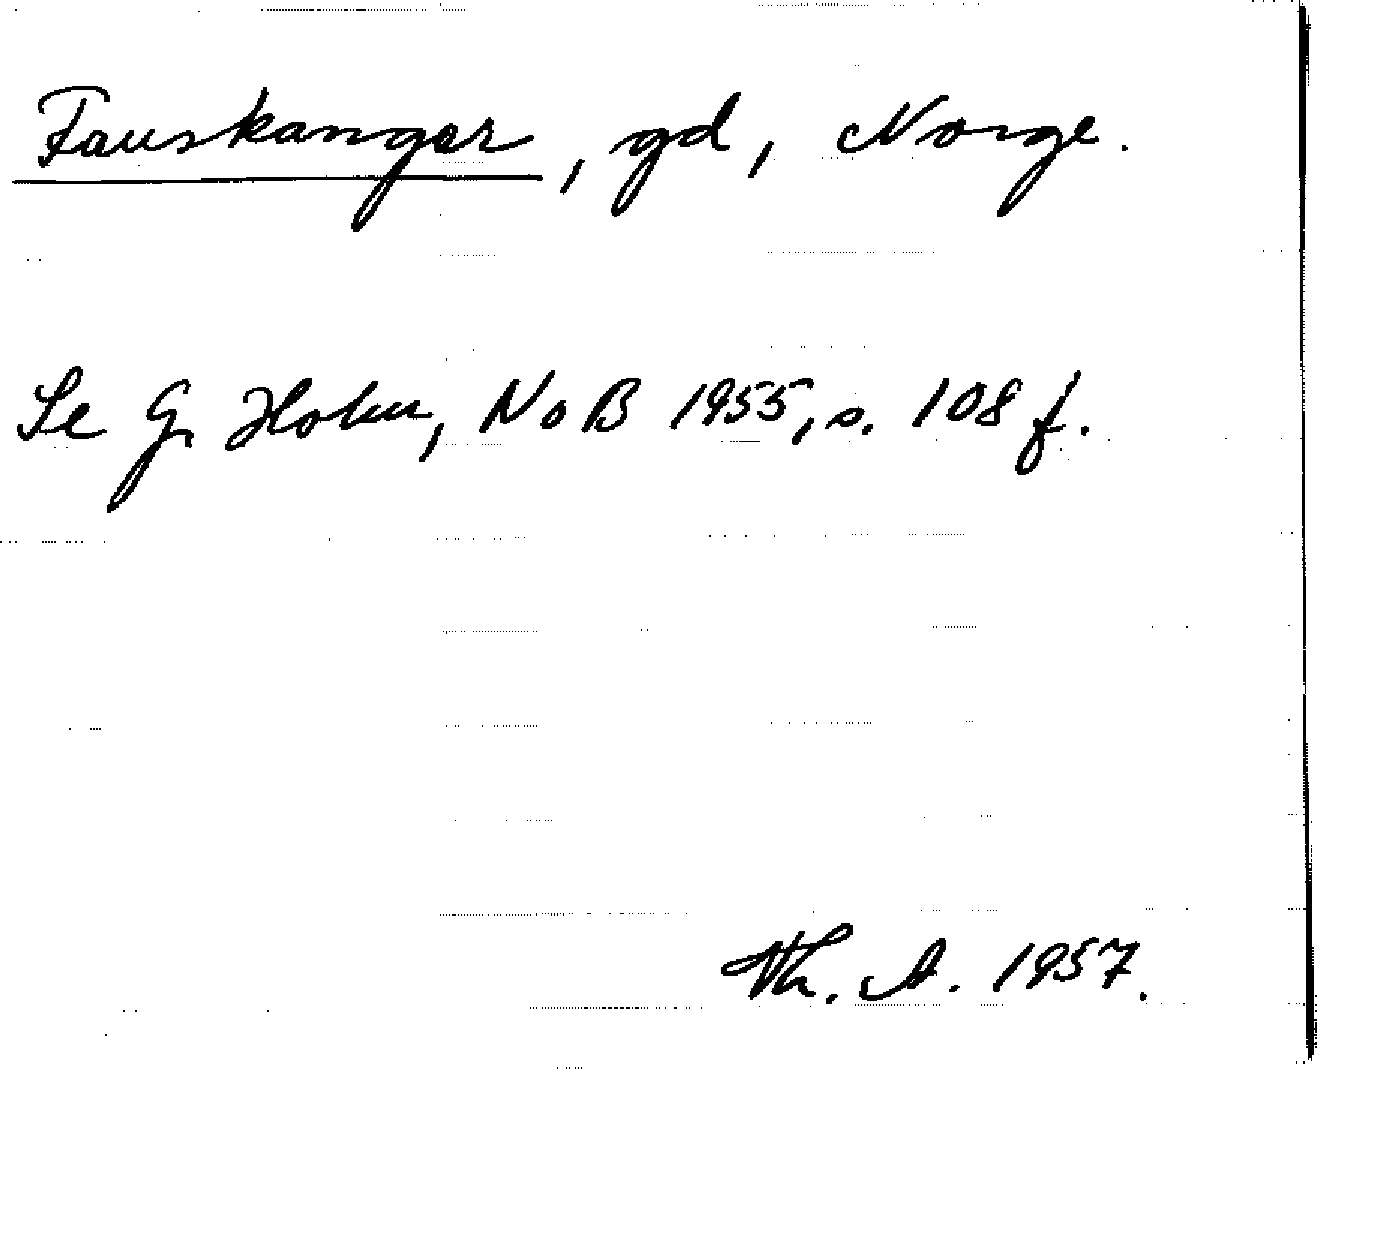 Fauskanger, gd, Norge.
Se G. Holm, NoB 1955, s. 108 f.
Th. A. 1957.